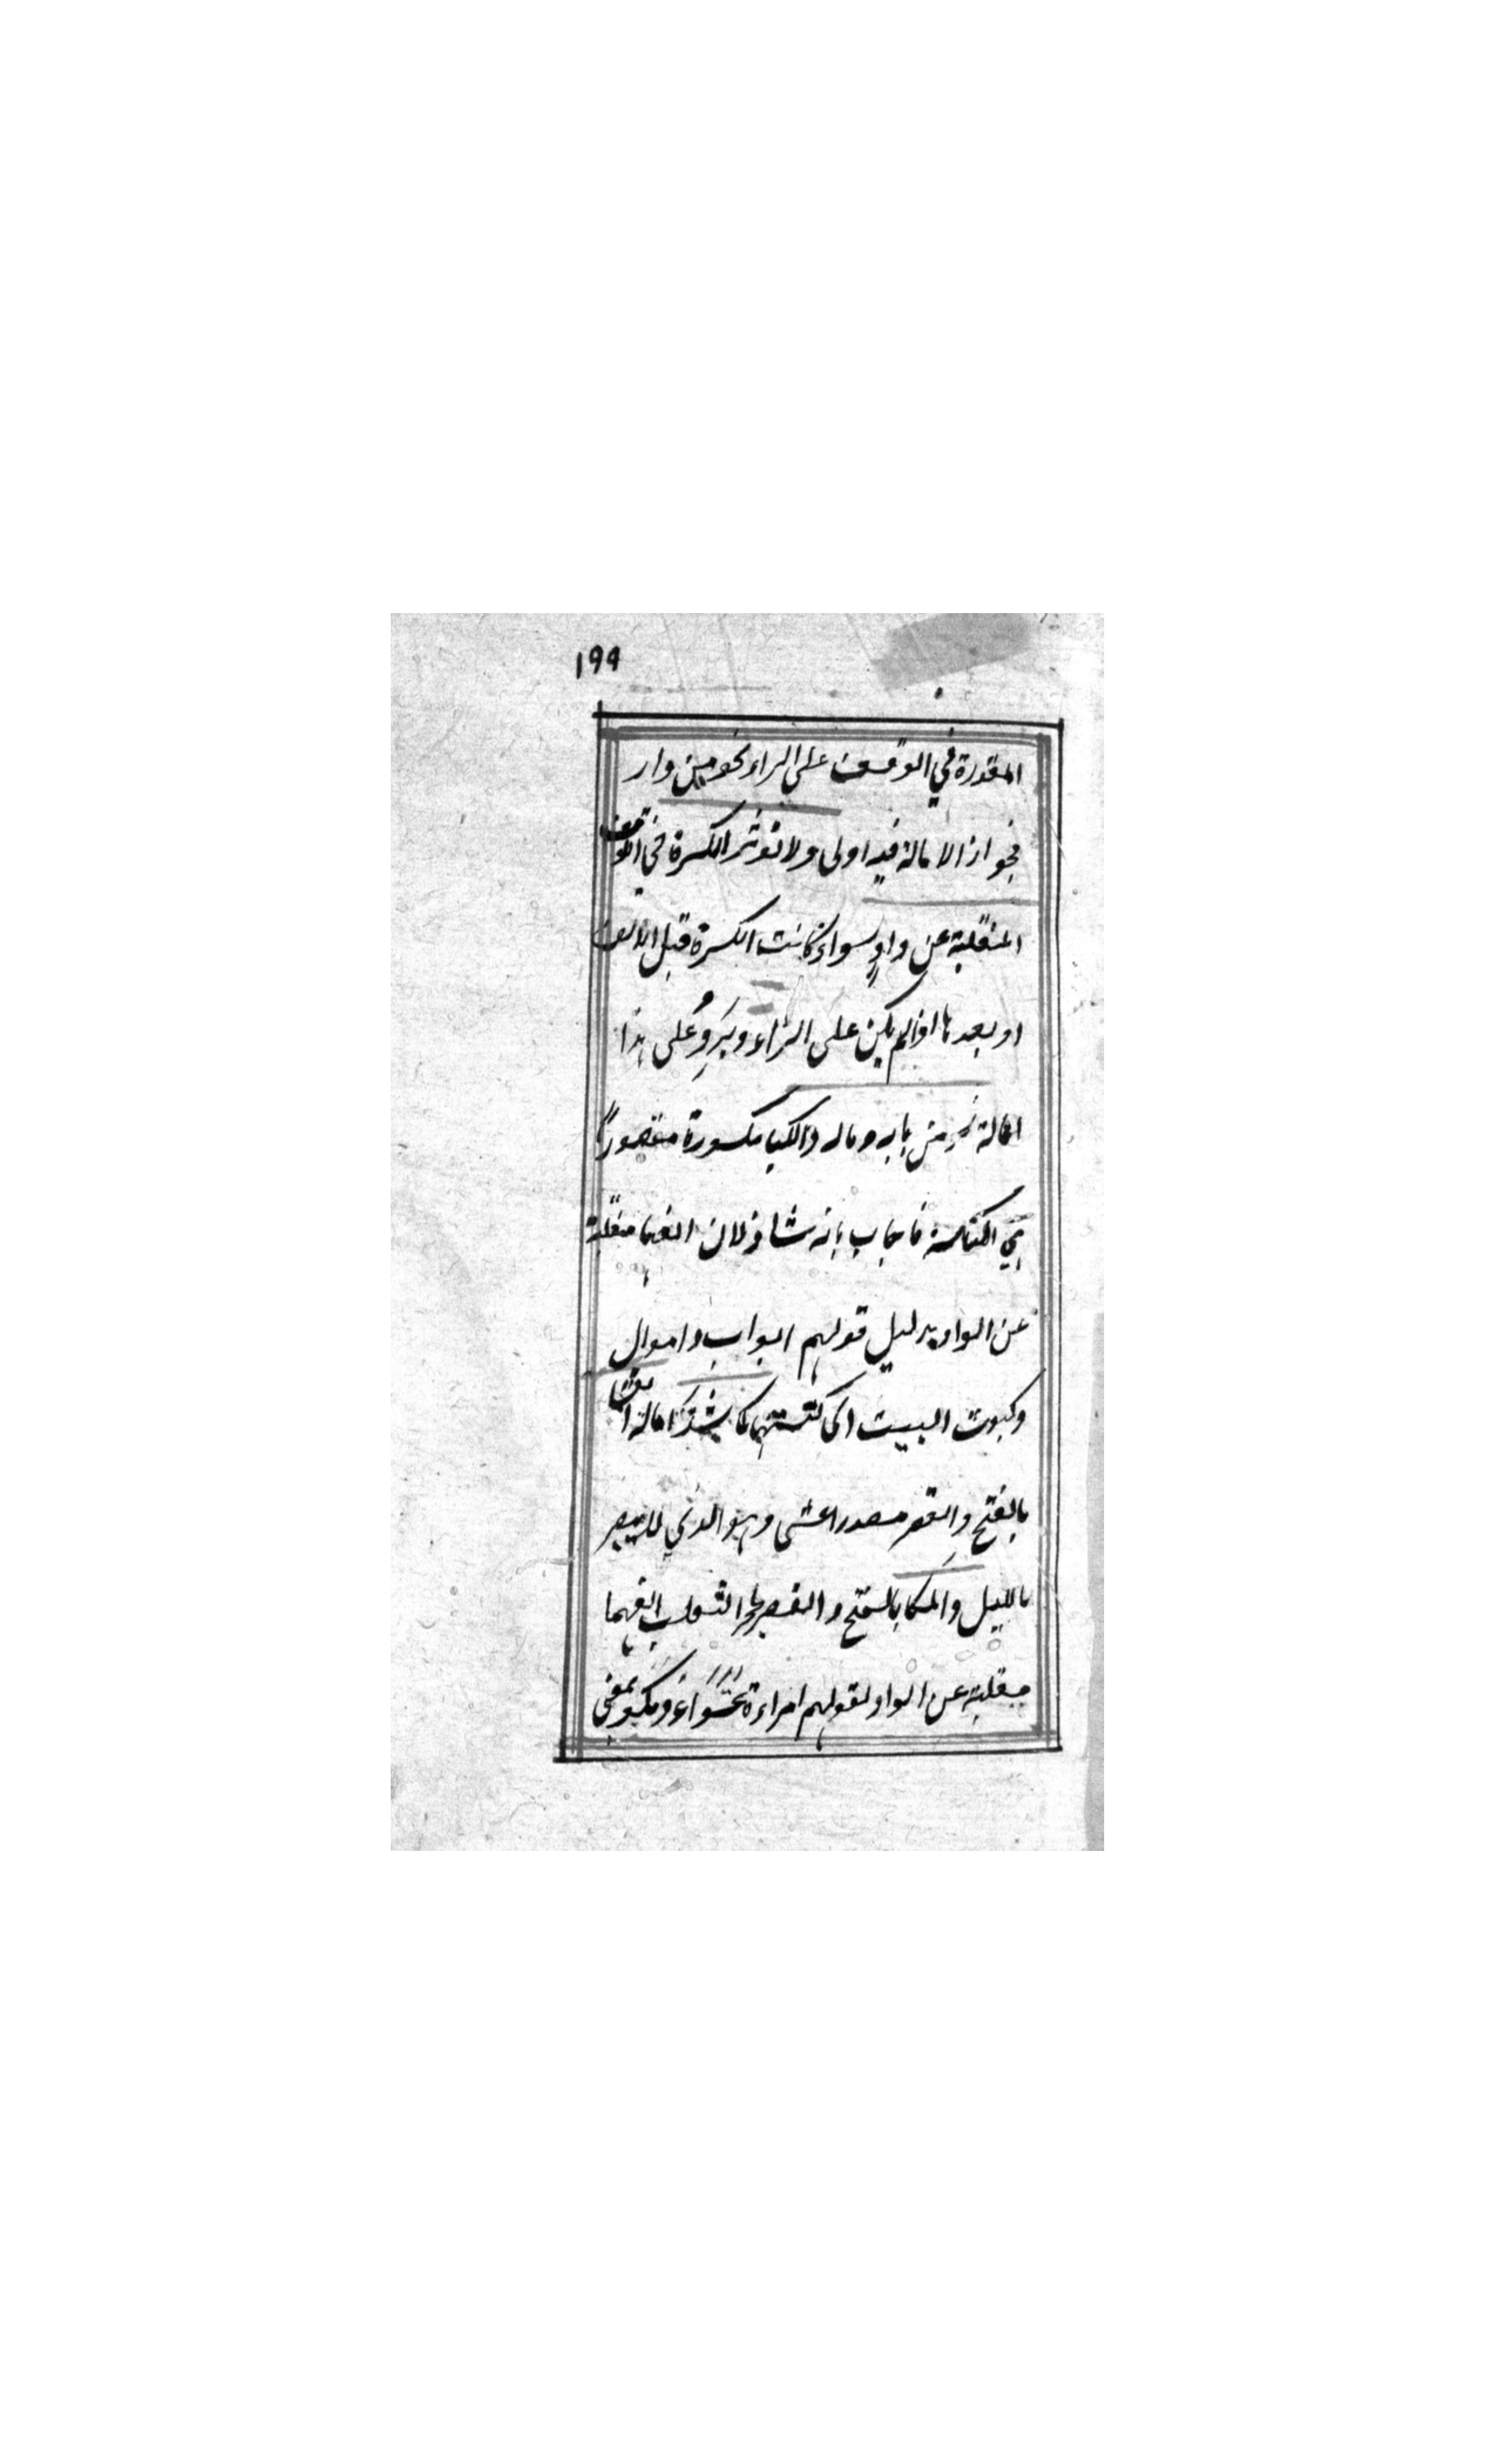 ۱۹۹
المقدرة في الوقف على الراء نحو من دار
فجواز الامالة فيه اولى ولا تؤثر الكسرة في الالف
المنقلبة عن واو سواء كانت الكسرة قبل الالف
او بعدها اذا لم يكن على الراء ويرد على هذا
امالة نحو من بابه وماله والكبا مكسورة مقصورا
هي الكناسة فاجاب بانه شاذ لان الفها منقلبة
عن الواو بدليل قولهم ابواب واموال
وكبوت البيت اى كنستها كما شذ امالة العشا
بالفتح والقصر مصدر اعشى وهو الذي لا يبصر
بالليل والمكا بالفتح والقصر جحر الثعلب الفهما
منقلبة عن الواو لقولهم امراءة عشواء ومكو بمعنى